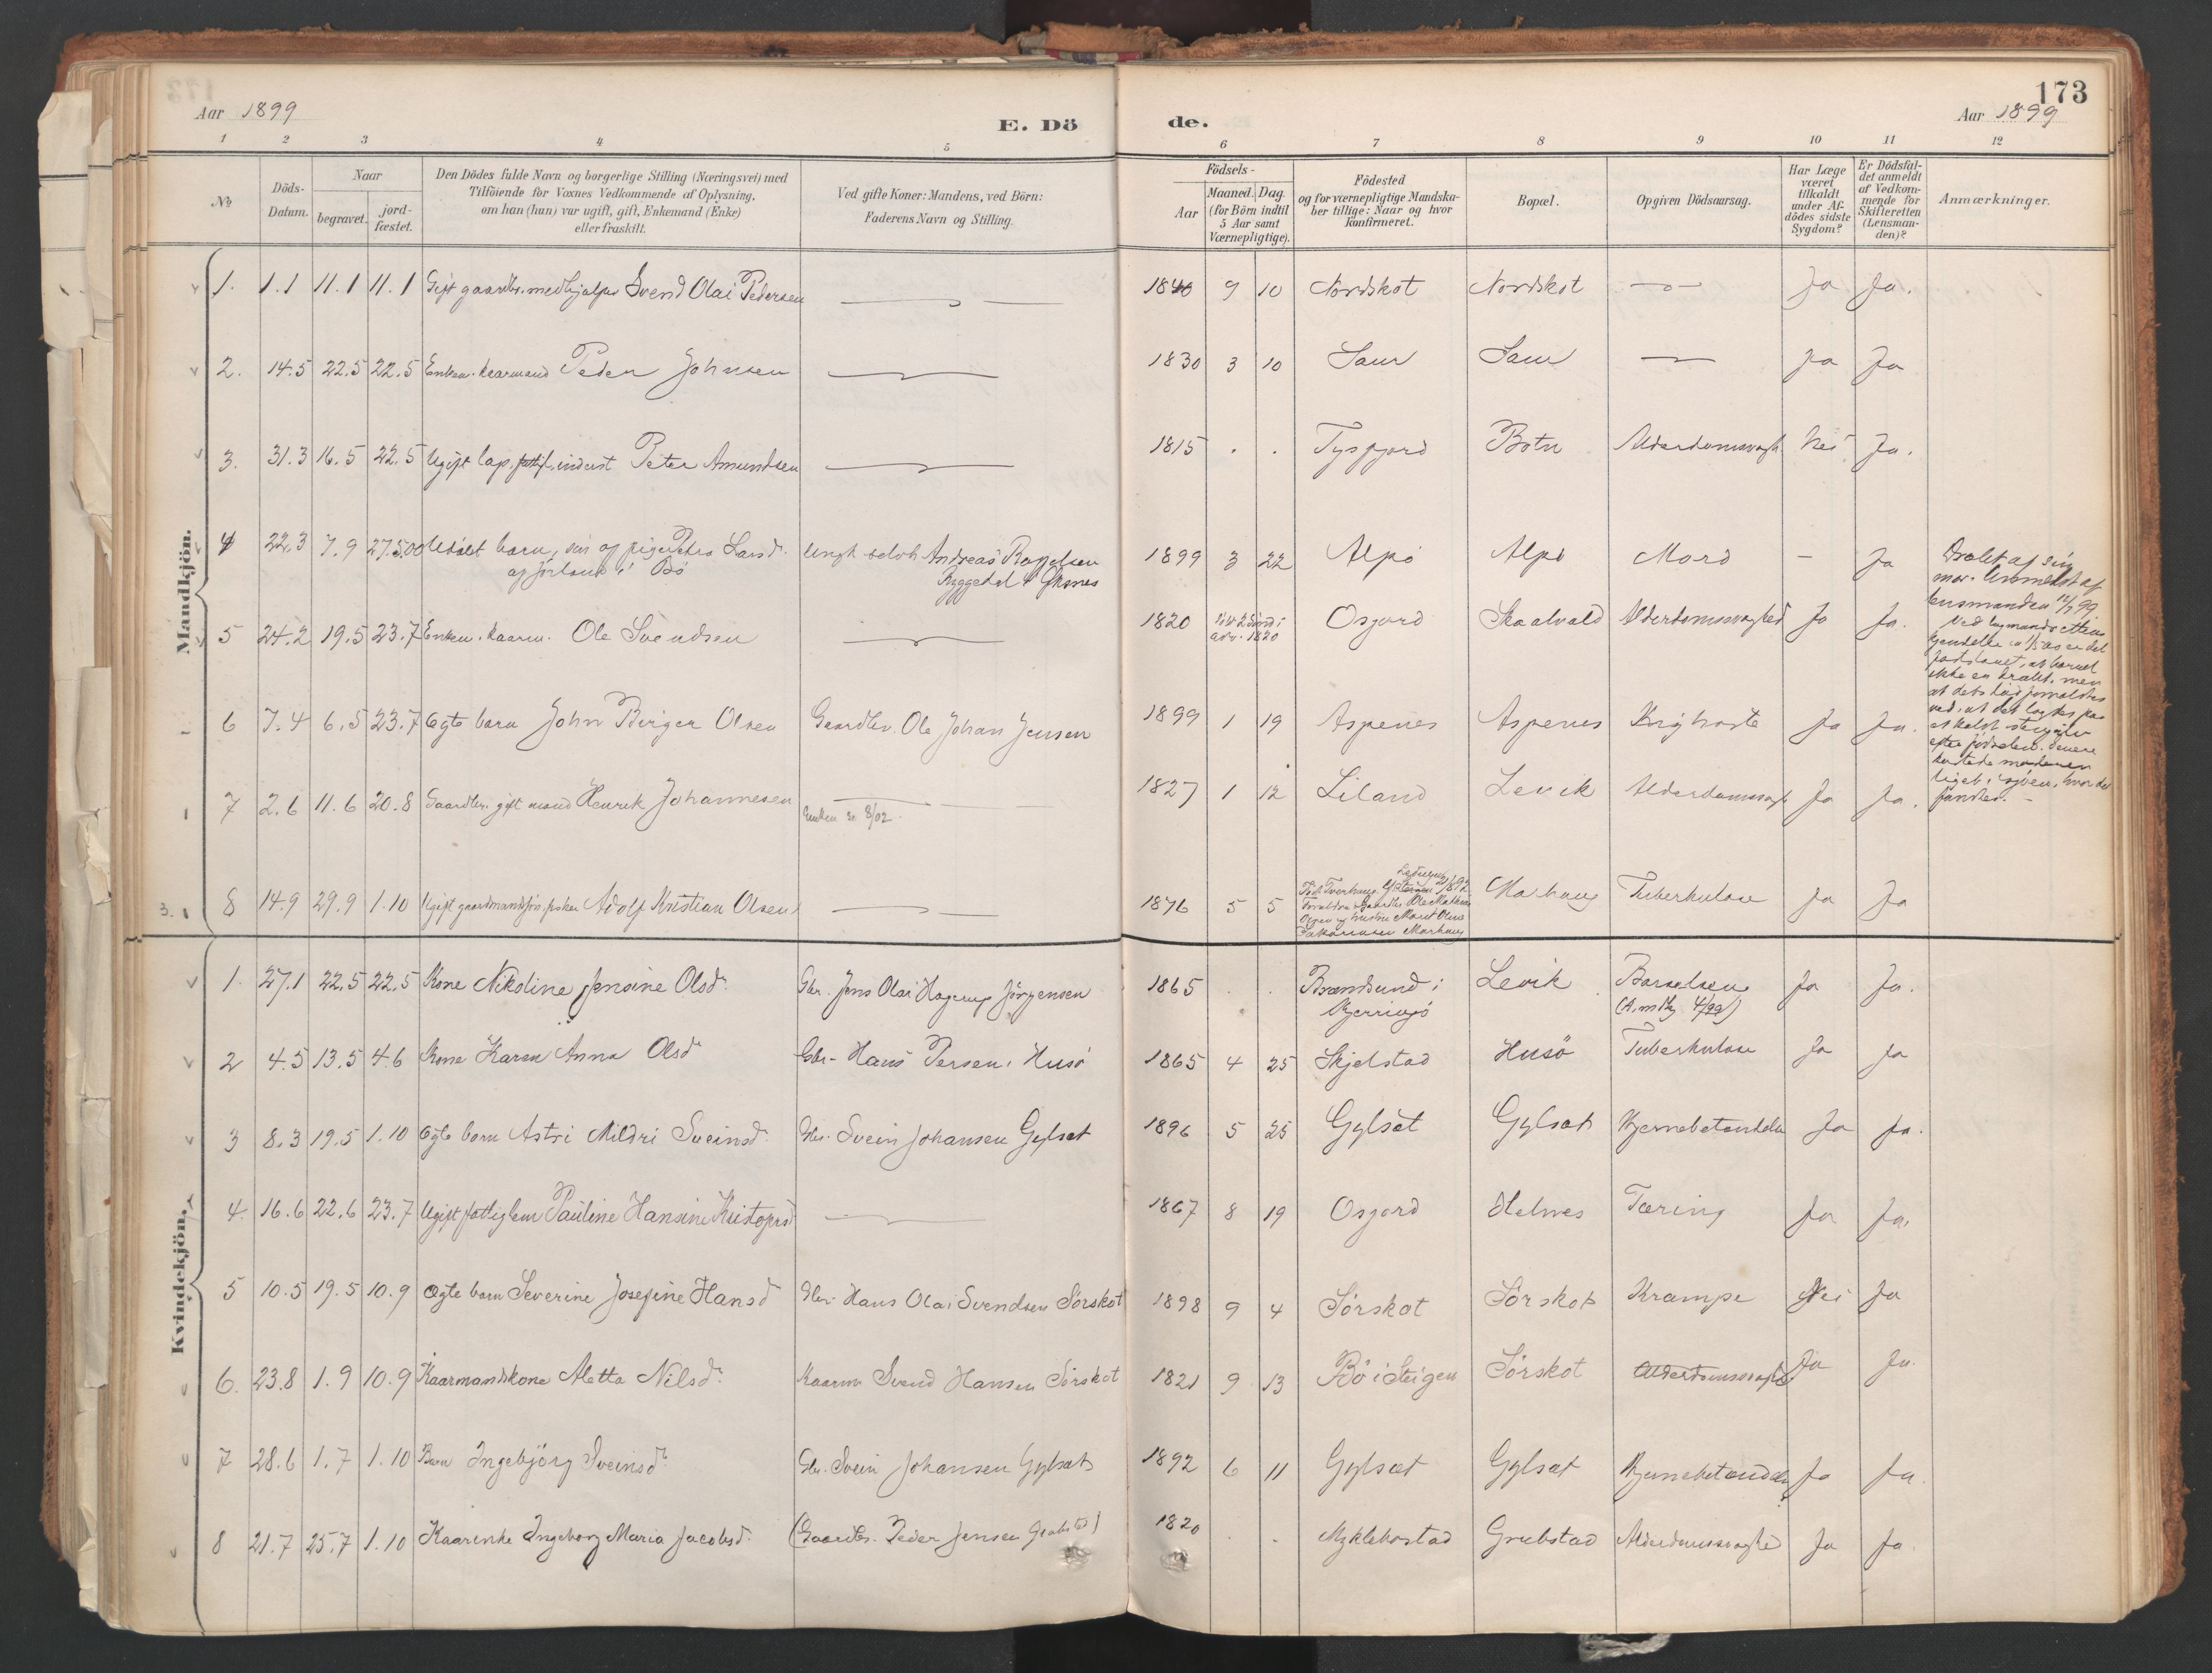 173
Aar 1899
E. Dö
de.
Aar 1899
1 2 3 4 5 6 7 8 9 10 11 12
No
Döds-
Datum.
Naar
begravet.
jord-
fæstet.
Den Dödes fulde Navn og borgerlige Stilling (Næringsvei) med
Tilföiende for Voxnes Vedkommende af Oplysning,
om han (hun) var ugift, gift, Enkemand (Enke)
eller fraskilt.
Ved gifte Koner: Mandens, ved Börn:
Faderens Navn og Stilling.
Födsels-
Aar
Maaned. Dag.
(for Börn indtil
5 Aar samt
Værnepligtige).
Födested
og for værnepligtige Mandska-
ber tillige: Naar og hvor
konfirmeret.
Bopæl.
Opgiven Dödsaarsag.
Har Læge
været
tilkaldt
under Af-
dödes sidste
Sygdom?
Er Dödsfal-
det anmeldt
af Vedkom-
mende for
Skifteretten
(Lensman-
den)?
Anmærkninger.
Mandkjön.
1. 1.1 11.1 11.1 Gift gaardbr. medhjælper Svend Olai Pedersen 1840 9 10 Nordskot Nordskot Ja Ja.
2. 14.5 22.5 22.5 Enkem. kaarmand Peder Johnsen 1830 3 10 Saur Saur Ja Ja
3. 31.3 16.5 22.5 Ugift lap, inderst Peter Amundsen 1815 . . Tysfjord Botn Alderdomssvagh. Nei Ja.
4 22.3 7.9 27.5.00 Udöbt barn, søn af pige Petra Larsd. ungk. Andreas 1899 3 22 Alpö Alpö Mord - Ja
i Bö
i Øksnes
Dræbt af sin
mor. Anmeldt af
lensmanden 12/7 99
Ved lagmandsrettens
kjendelse er det
at barnet
ikke er dræbt, men
at dets død forvoldtes
ved, at det lagdes paa
et koldt
efter fødselen. Senere
kastede moderen
liget i sjøen, hvor det
fandtes. -
5 24.2 19.5 23.7 Enkem. kaarm. Ole Svendsen 1820 Osjord Skaalvold Alderdomssvaghed Ja Ja.
adv. 1820
6 7.4 6.5 23.7 Egte barn John Birger Olsen Gaardbr. Ole Johan Jensen 1899 1 19 Aspenes Aspenes Kighoste Ja Ja.
7 2.6 11.6 20.8 Gaardbr. gift mand Henrik Johannesen 1827 1 12 Liland Levik Alderdomssvagh. Ja Ja.
Enken 8/02
3. 8 14.9 29.9 1.10 Ugift gaardmandssøn fisker Adolf Kristian Olsen 1876 5 5 Marhaug Tuberkulose Ja Ja
Kvindekjön.
1. 27.1 22.5 22.5 Kone Nikoline Jensine Olsd. Gbr. Jens Olai Hagerup Jörgensen 1865 . . Brændsund i Levik Barselsen Ja Ja.
Kjerringö
4/99)
2 4.5 13.5 4.6 Kone Karen Anna Olsd Gbr- Hans Persen, Husö 1865 4 25 Skjelstad Husö Tuberkulose Ja Ja
3 8.3 19.5 1.10 Egte barn Astri Mildri Sveinsd. Gbr. Svein Johansen Gylset 1896 5 25 Gylset Gylset Hjernebetændelse Ja Ja.
4. 16.6 22.6 23.7 Ugift fattiglem Pauline Hansine Kristofersd. 1867 8 19 Osjord Helnes Tæring Ja Ja.
5 10.5 19.5 10.9 Ægte barn Severine Josefine Hansd Gbr. Hans Olai Svendsen Sörskot 1898 9 4 Sörskot Sörskot Krampe Nei Ja
6. 23.8 1.9 10.9 Kaarmandskone Aletta Nilsd. Kaarm Svend Hansen Sörskot 1821 9 13 Bö i Steigen Sörskot Alderdomssvaghed Ja Ja.
7 28.6 1.7 1.10 Barn Ingebjörg Sveinsd. Gbr. Svein Johansen Gylset 1892 6 11 Gylset Gylset Hjernebetændelse Ja Ja.
8 21.7 25.7 1.10 Kaarenke Ingeborg Maria Jacobsd. (Gaardbr. Peder Jensen Grubstad) 1820 . . Myklebostad Grubstad Alderdomssvaghed Ja Ja.